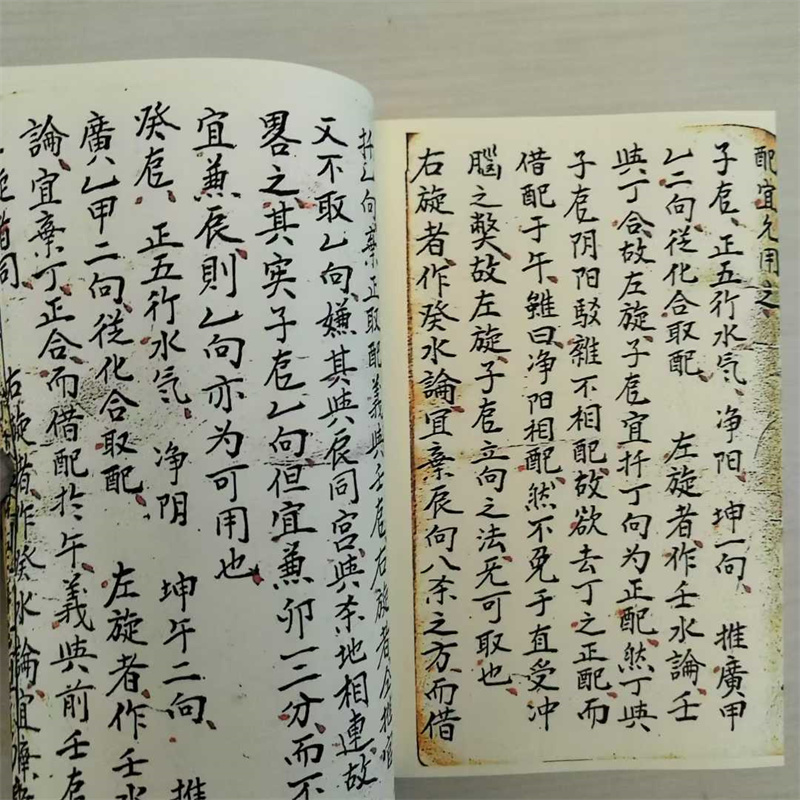 配宜允用之
子龙、正五行水气、净阳 坤一向、 推廣甲
乙二向從化合取配 左旋者作壬水論壬
與丁合故左旋子龙宜扦丁向为正配然丁與
子龙阴阳駁雜不相配故欲去丁之正配而
借配于午雖曰净阳相配然不免乎直受沖
腦之獘故左旋子龙立向之法无可取也
右旋者作癸水論宜棄辰向八杀之方而借
扦乙向棄正取配義與壬龙右旋者仝推
又不取乙向嫌其與辰同宮與杀地相連故
畧之其实子龙乙向但宜兼卯一二分而不
宜兼辰則乙向亦为可用也
癸龙、正五行水气 净阴 坤午二向、 推
廣乙甲二向從化合取配 左旋者作壬水
論宜棄丁正合而借配於午義與前壬龙
旋者同 右旋者作癸水論宜